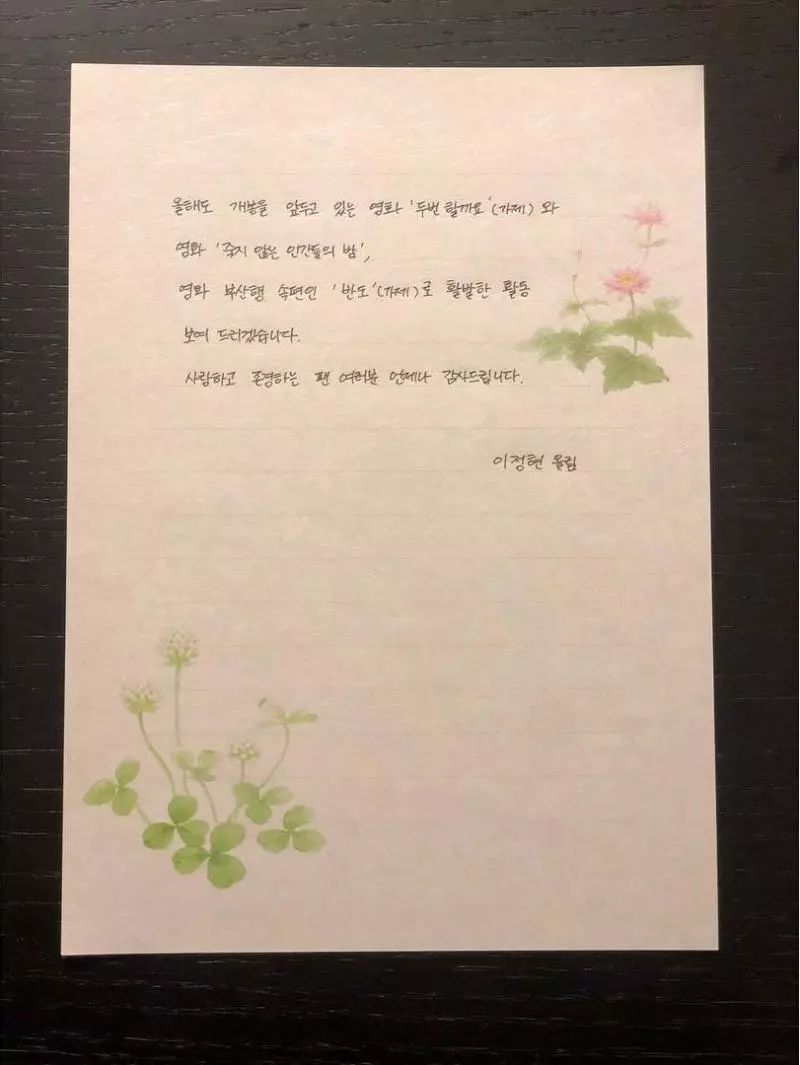 올해도 개봉을 앞두고 있는 영화 '두번 할까요'(가제) 와
영화 '죽지 않는 인간들의 밤',
영화 부산행 속편인 '반도'(가제)로 활발한 활동
보여 드리겠습니다.
사랑하고 존경하는 팬 여러분 언제나 감사드립니다.
이정현 올림